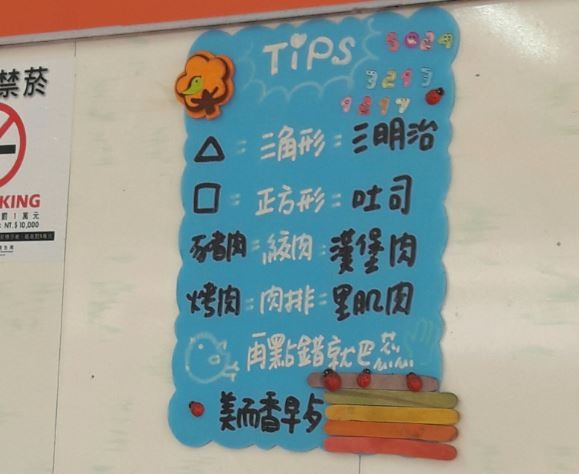 TiPS
禁菸
KING
NT.$10,000
△ = 三角形 = 三明治
□ = 正方形 = 吐司
豬肉 = 絞肉 = 漢堡肉
烤肉 = 肉排 = 里肌肉
再點錯就巴蕊
美而香早夕